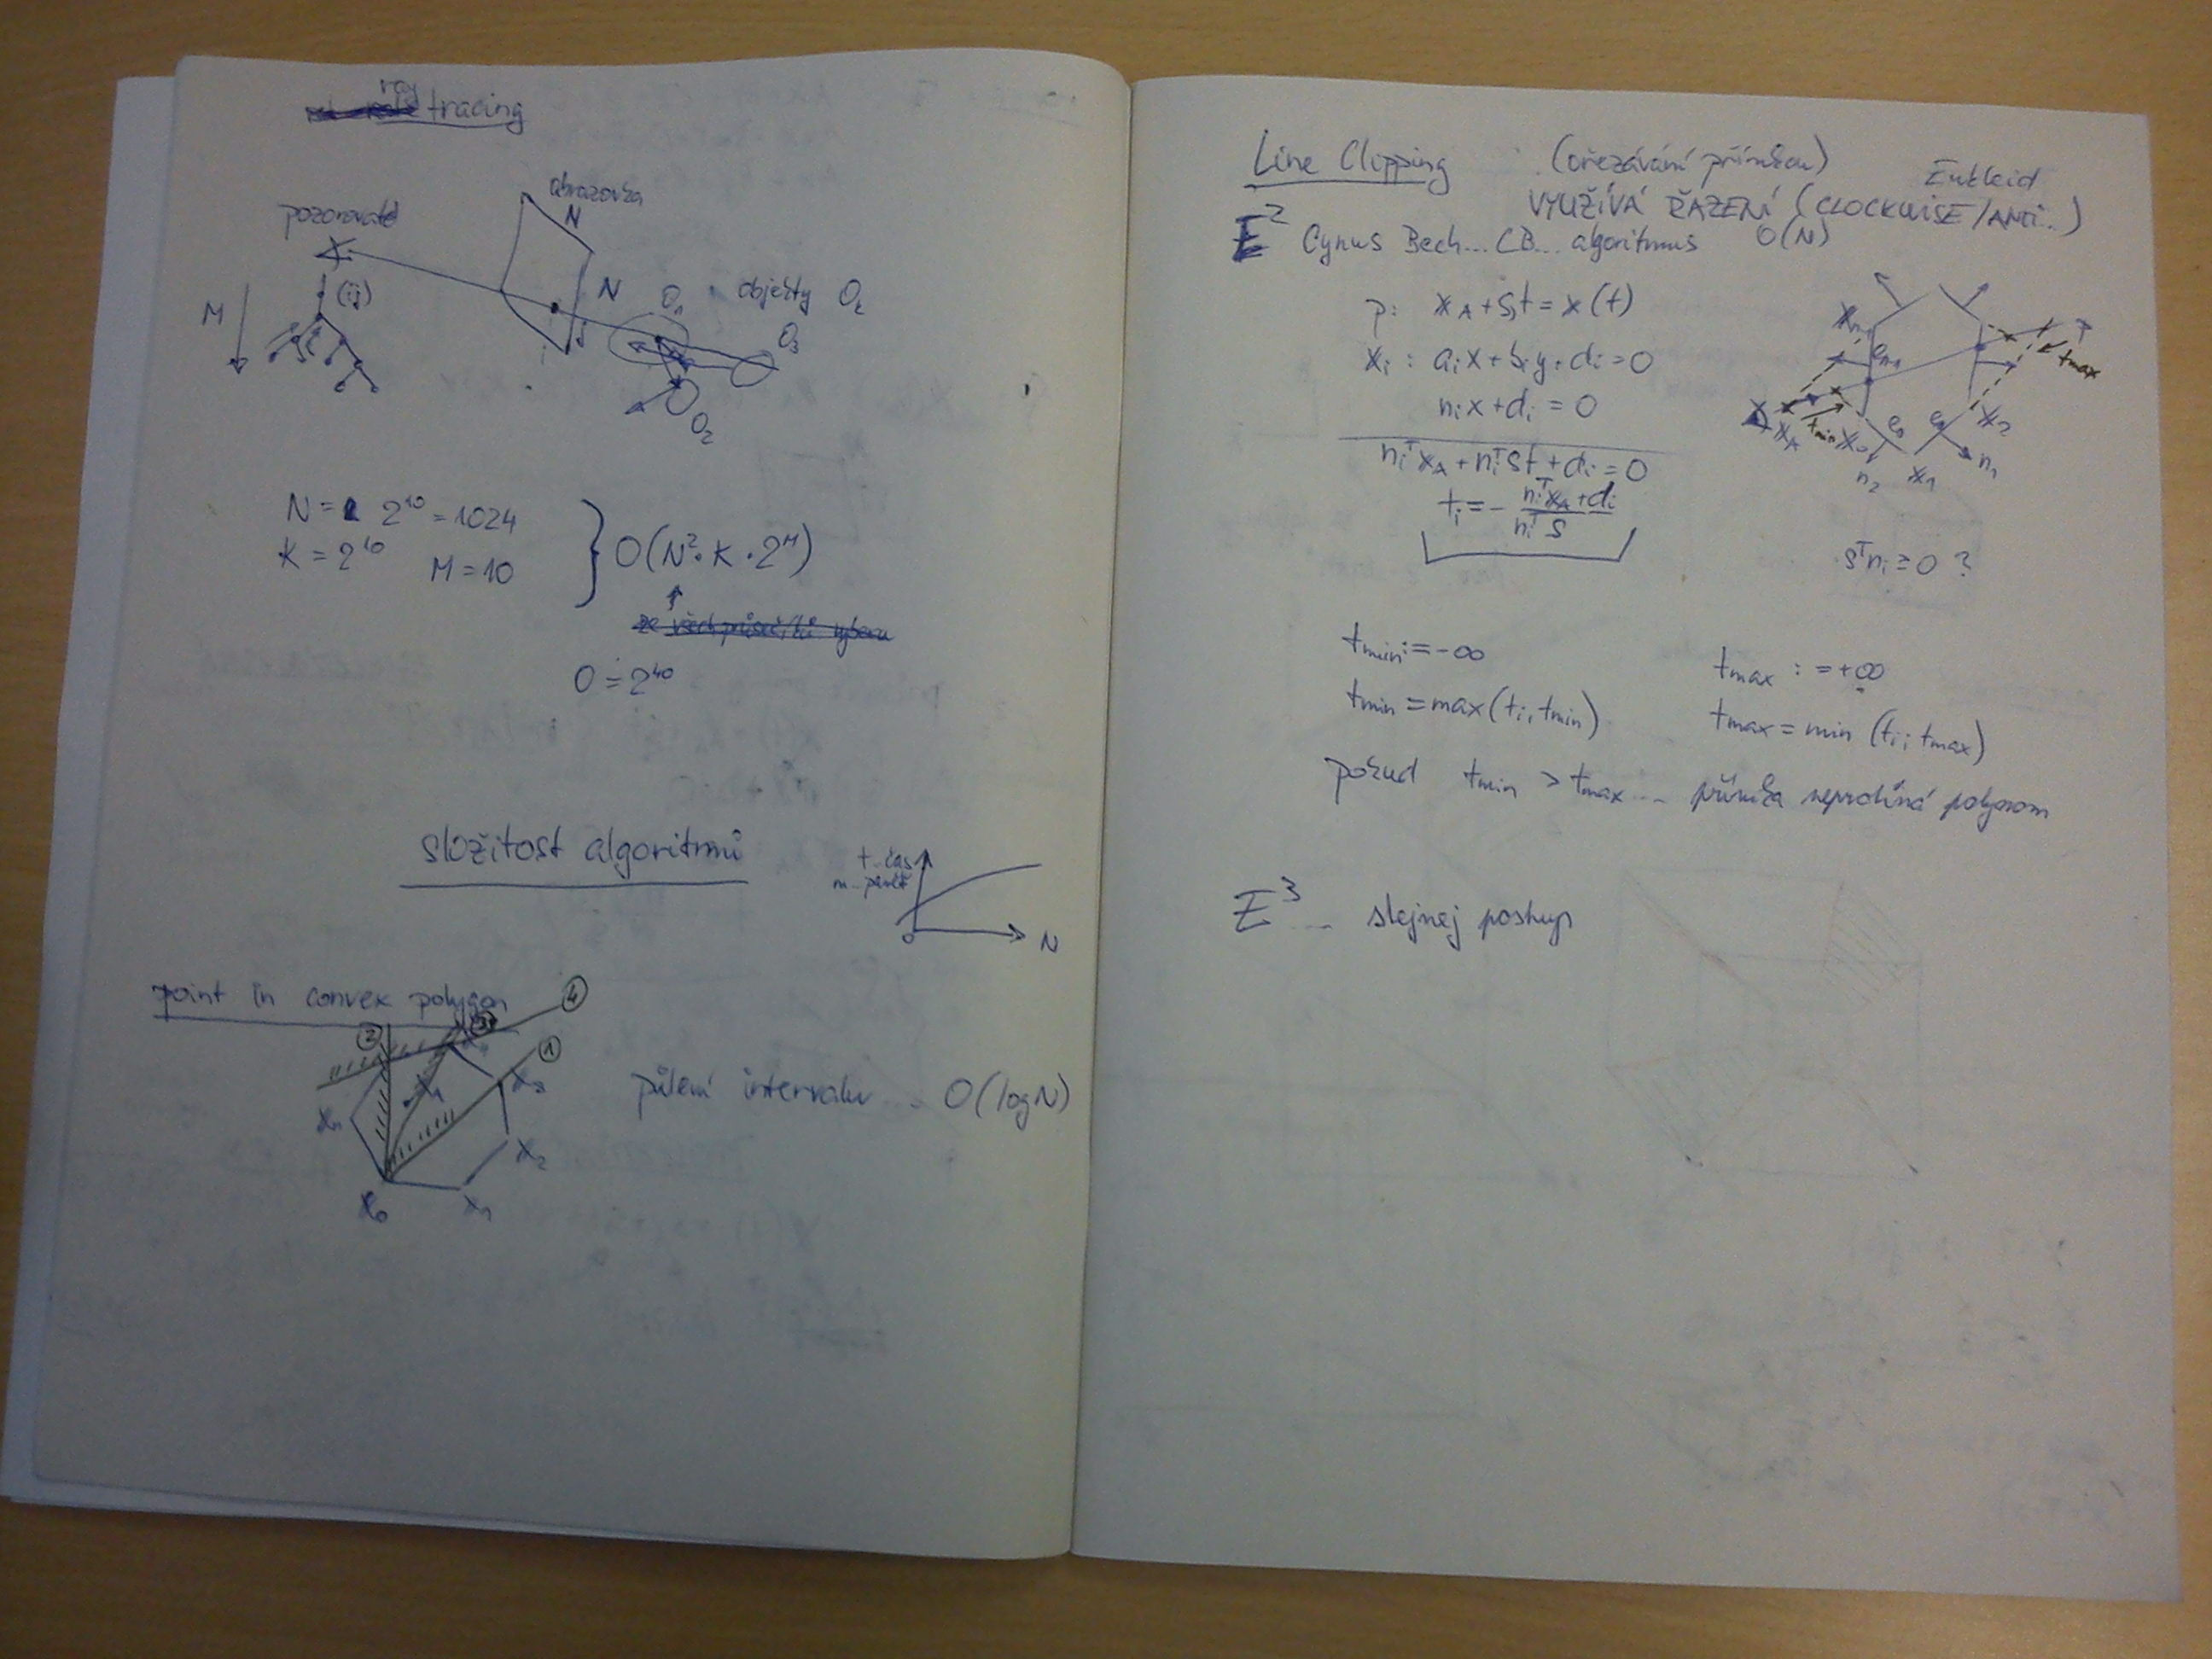 ray
tracing
obrazovka
N
pozorovatel
(ij)
M
N
O₁
objekty O₂
O₃
j
i
O₂
N = 2¹⁰ = 1024
K = 2¹⁰ M = 10
O(N²·K·2ᴹ)
ze všech průsečíků vyberu
O ≐ 2⁴⁰
složitost algoritmů
t..čas
m..paměť
N
point in convex polygon
④
③
②
①
x₄
x₃
xₙ
x₂
x₀
x₁
půlení intervalu .. O(log N)
Line Clipping (ořezávání přímkou) Eukleid
VYUŽÍVÁ ŘAZENÍ (CLOCKWISE/ANTI..)
E² Cyrus Bech... CB... algoritmus O(N)
p: x_A + st = x(t)
x_i : a_i x + b_i y + d_i = 0
n_i x + d_i = 0
n_iᵀ x_A + n_iᵀ s t + d_i = 0
t_i = - (n_iᵀ x_A + d_i) / (n_iᵀ s)
p
tmax
x_A
tmin
x₀
x₂
n₁
n₂
x₁
sᵀn_i ≥ 0 ?
tmin := -∞
tmax := +∞
tmin = max(t_i, tmin)
tmax = min (t_i; tmax)
pokud tmin > tmax... přímka neprotíná polygonom
E³ ... stejnej postup